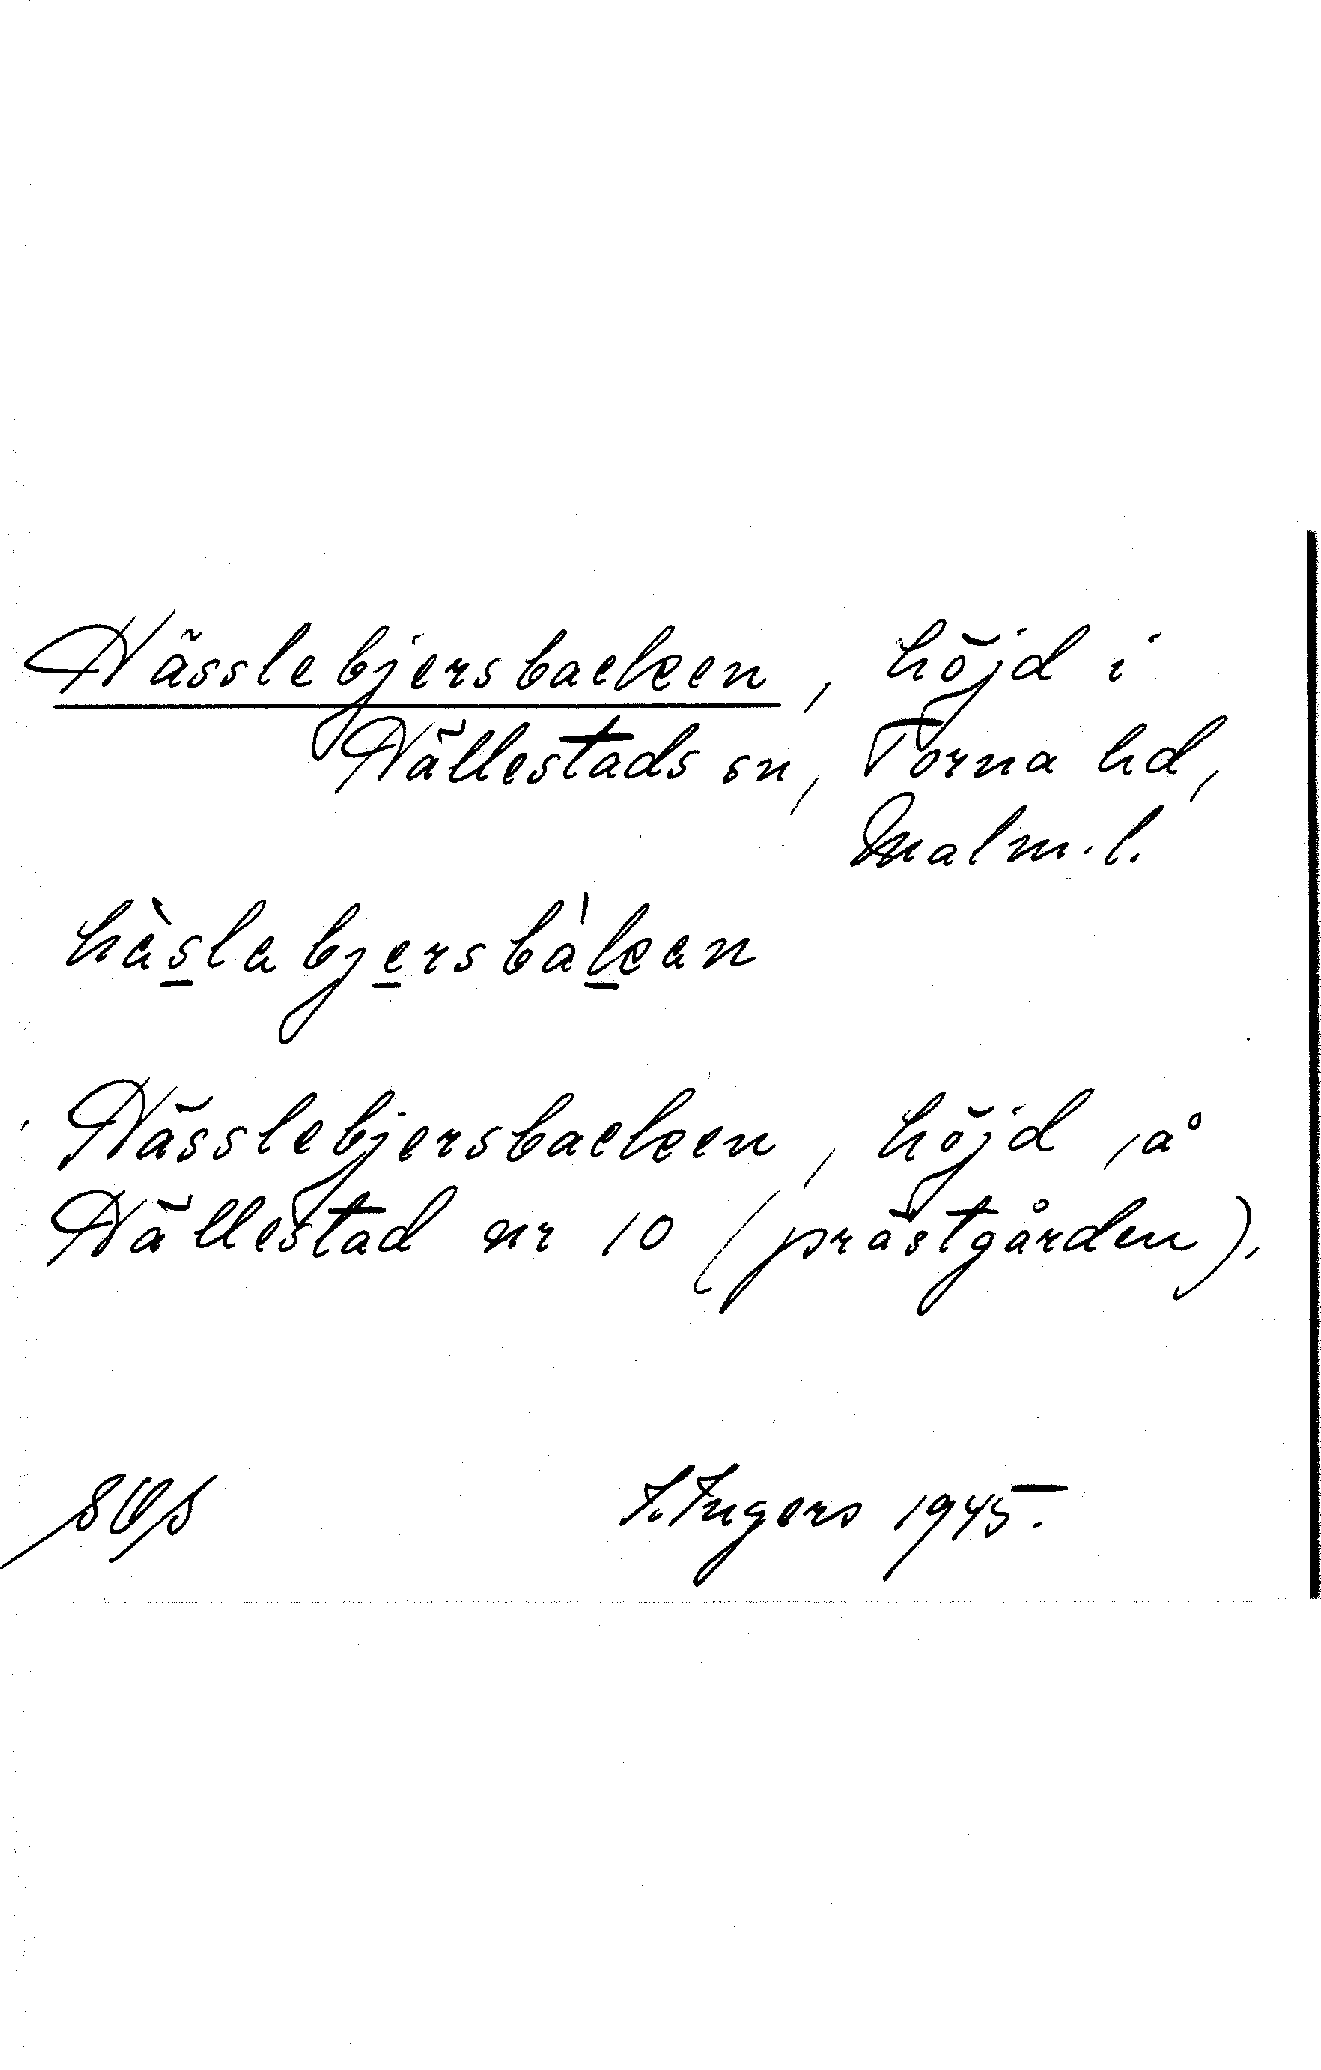 Hässlebjersbacken, höjd i
Hällestads sn, Torna hd,
Malm.l.
hèslabjersbàkan
Hässlebjersbacken, höjd, å
Hällestad nr 10 (prästgården).
I. Ingers 1945.